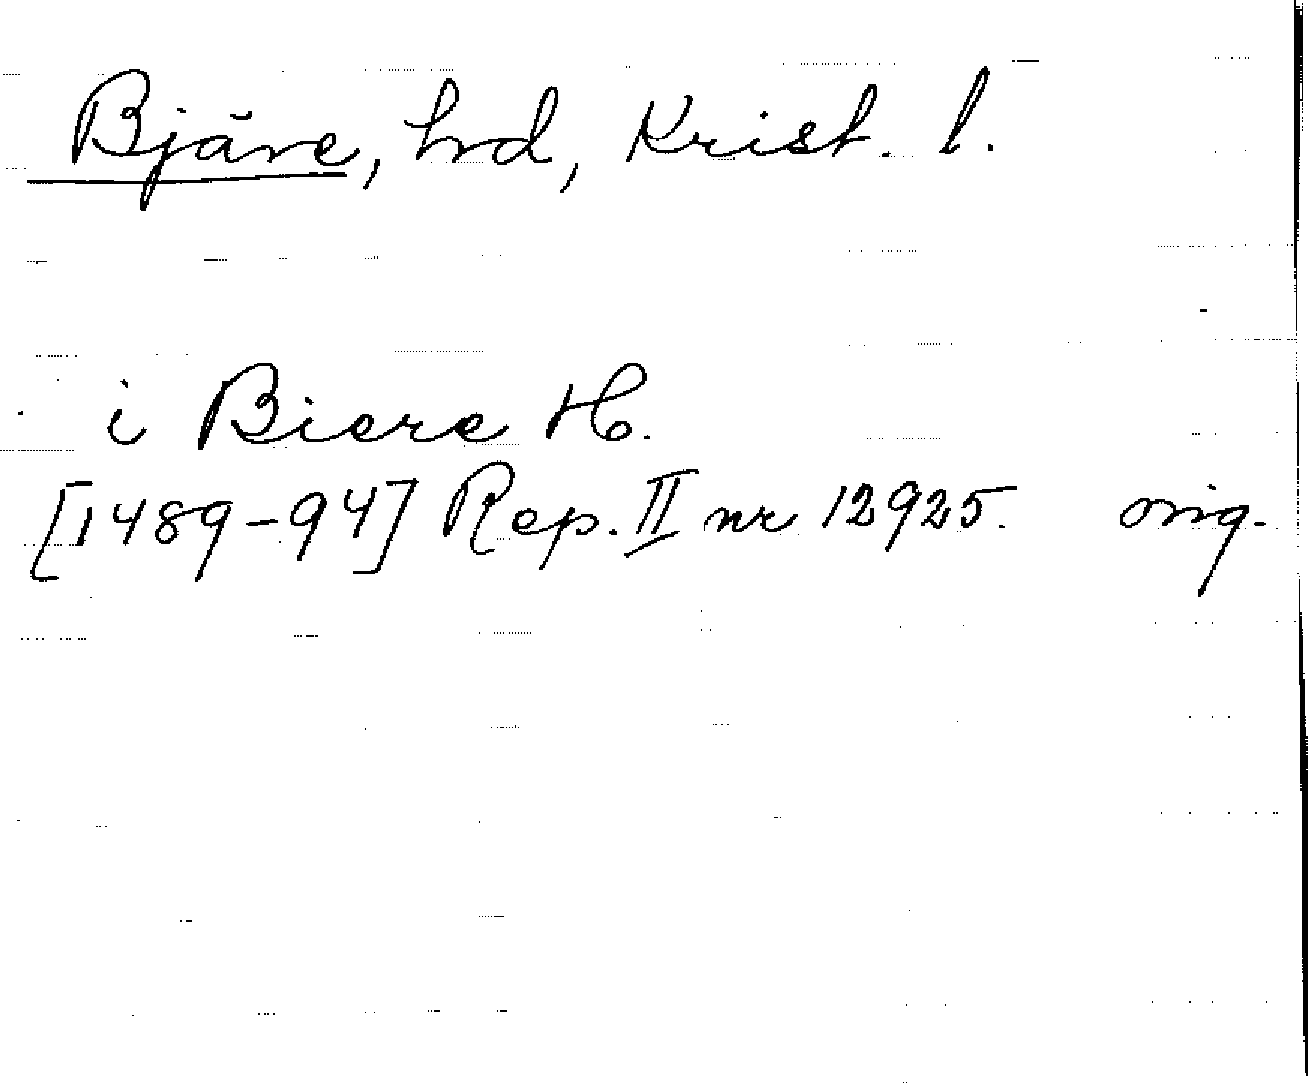 Bjäre, hrd, Krist. l.
i Biere H.
[1489-94] Rep. II nr 12925. orig.